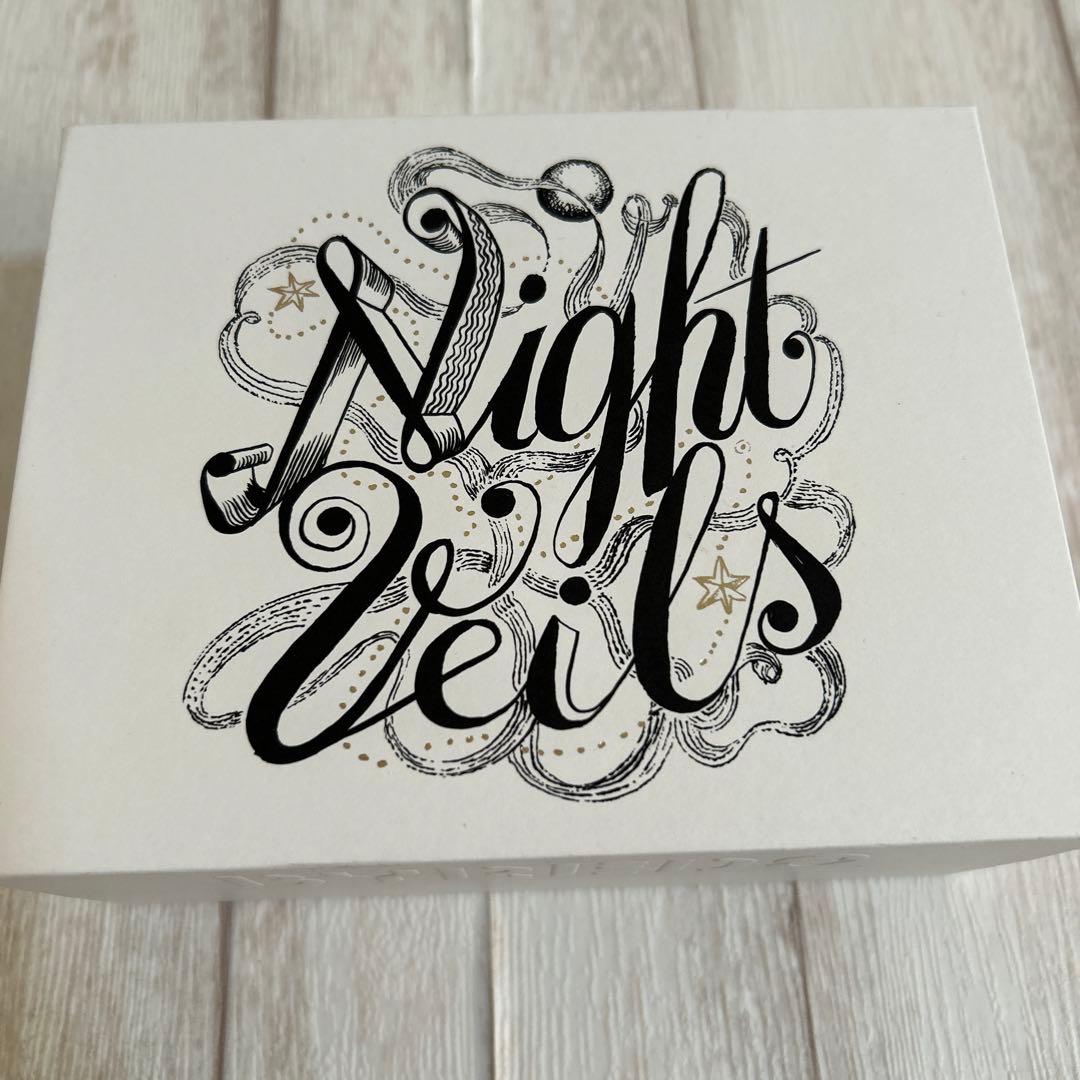 Night
Veils